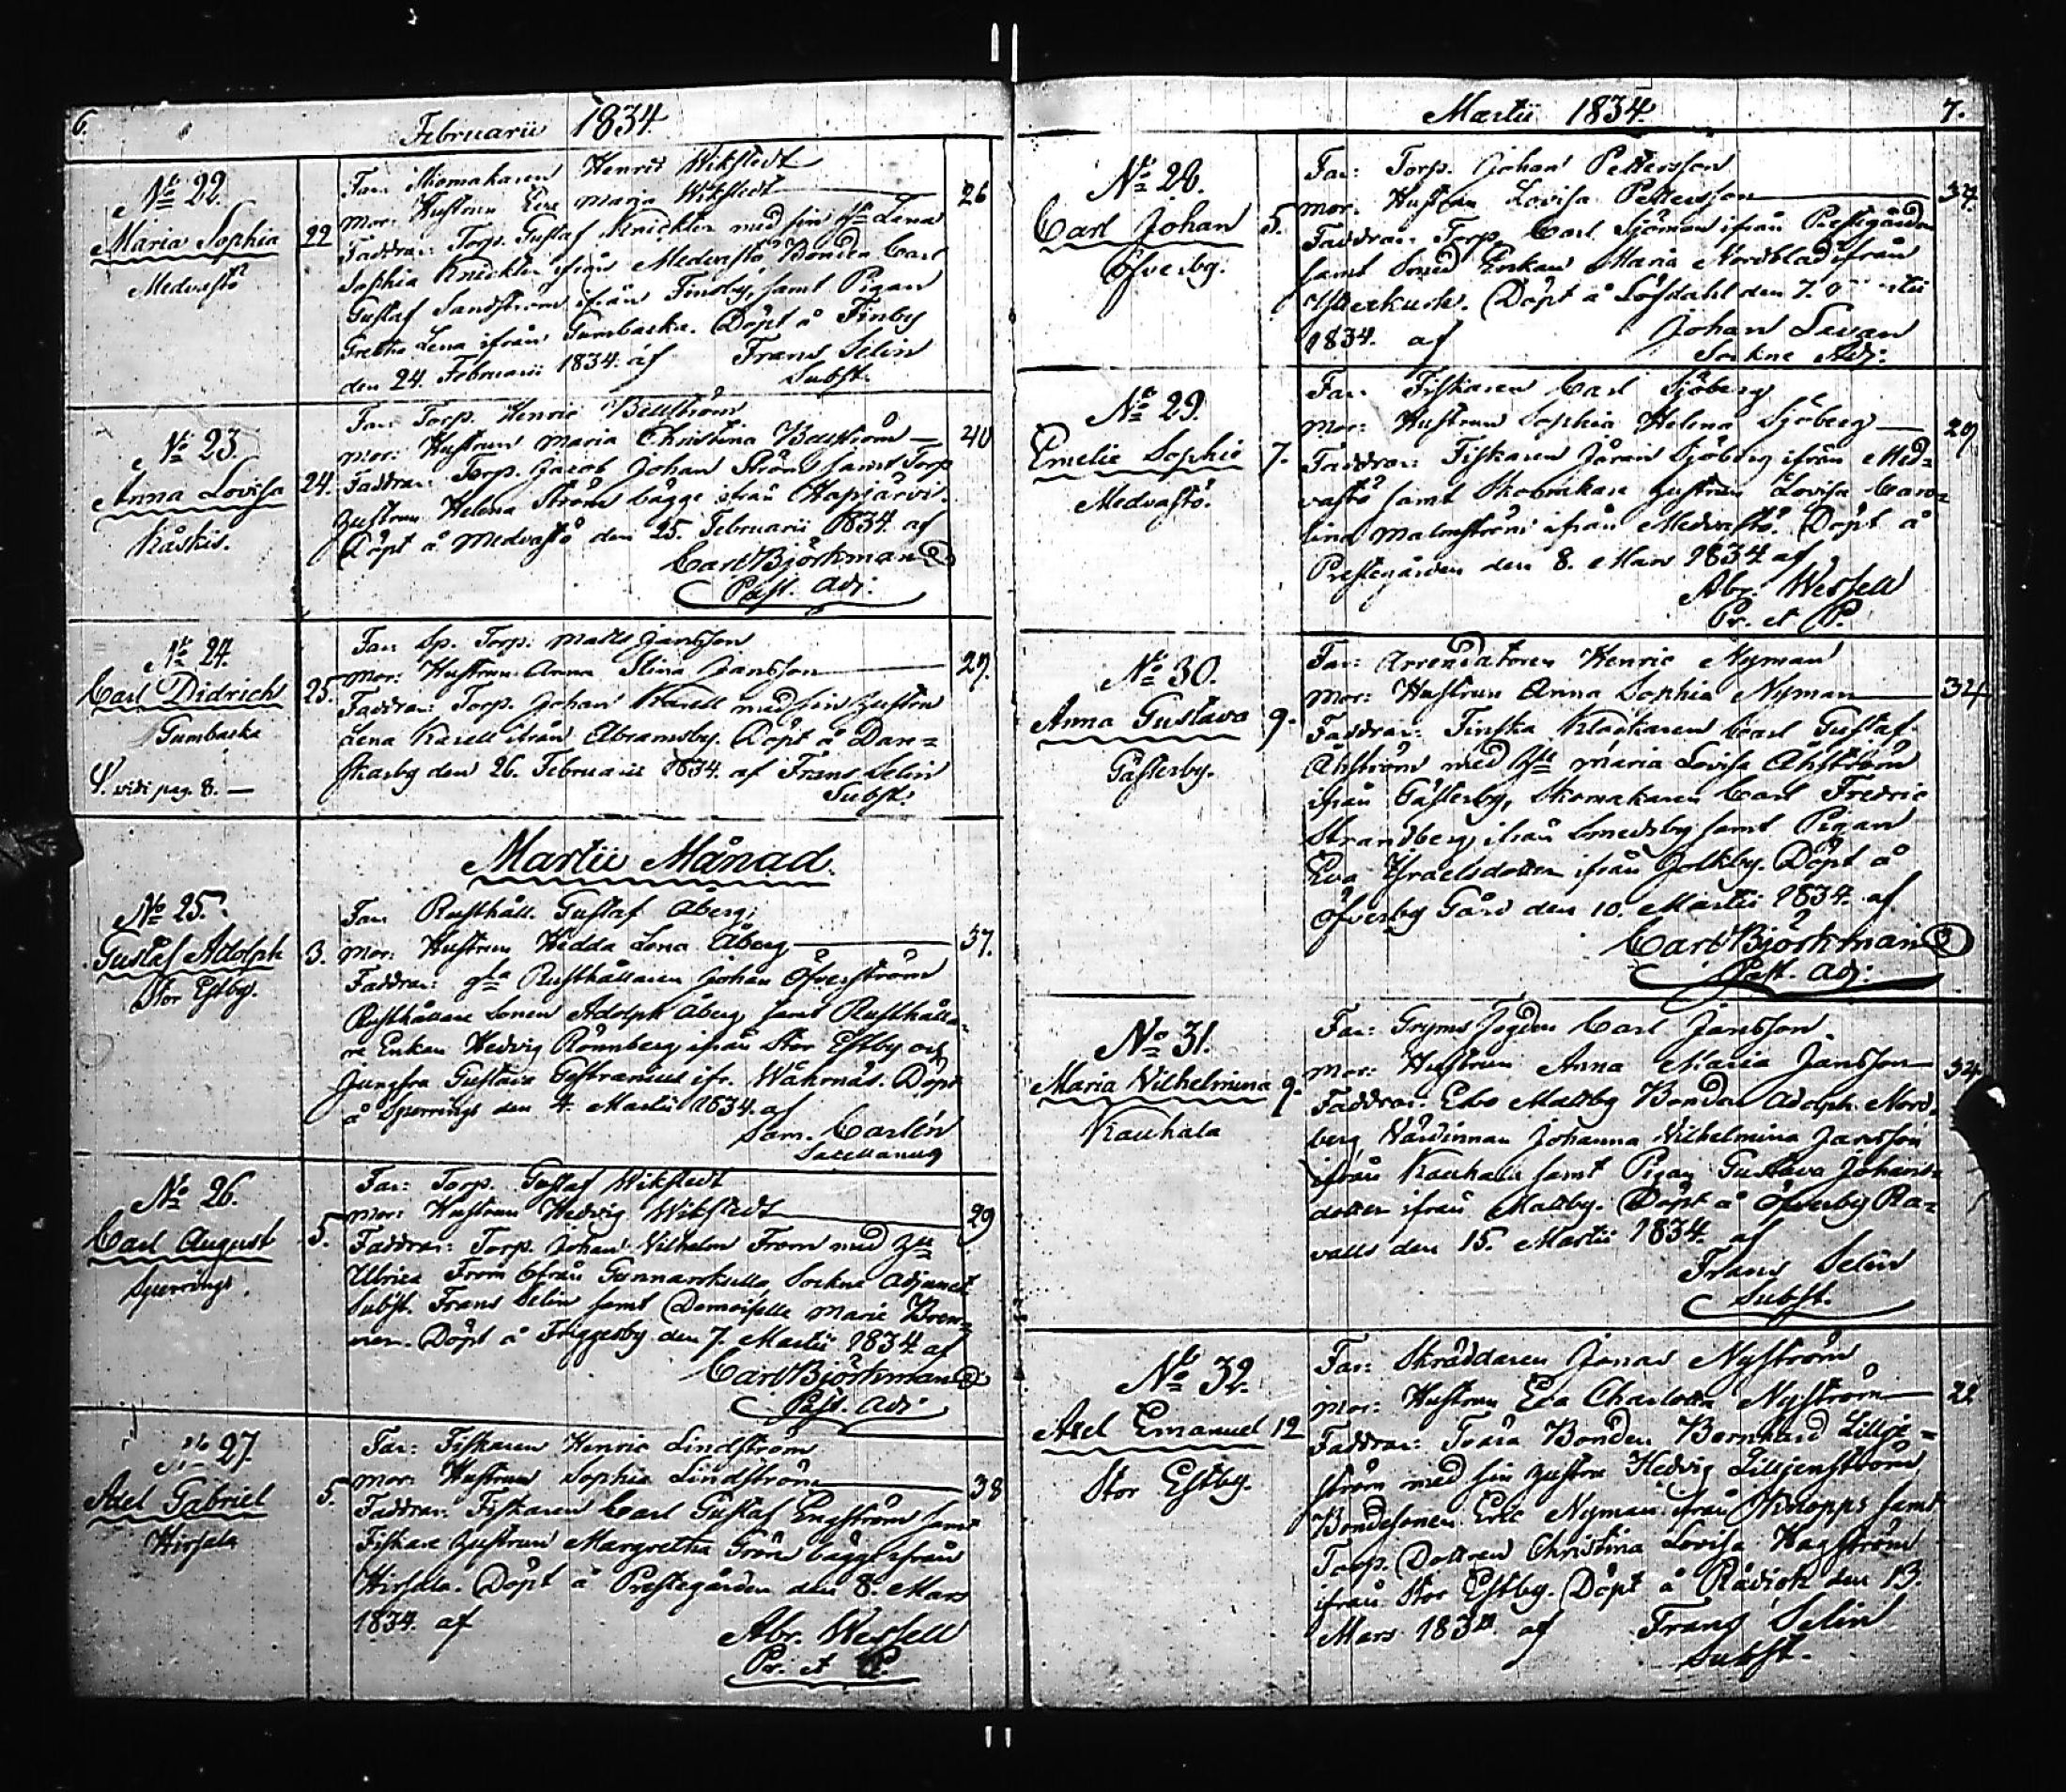 6.
Februarii 1834.
No 22.
Maria Sophia
Medvastö
22
Far: Skomakaren Henric Wikstedt
Mor: Hustrun Eva Maria Wikstedt
26
Faddrar: Torp. Gustaf Knichter med sin Hu Lena
Sophia Knichter ifrån Medvastö Bonden Carl
Gustaf Sandström ifrån Finsby, samt Pigan
Gretha Lena ifrån Gumbacka. Döpt å Finby
den 24. Februarii 1834. af Frans Selin
Subst.
No 23.
Anna Lovisa
Kåskis.
24.
Far: Torp. Henric
Mor: Hustrun Maria Christina
40
Faddrar: Torp. Jacob Johan Ström samt Torp
Hustrun Helena Ström bägge ifrån Hapjärvi.
Döpt å Medvastö den 25. Februarii 1834. af
Carl Björkman
Past. Adj.
No 24.
Carl Didrich
Gumbacka
vidi pag. 8.
25.
Far: Sp. Torp. Matts Jansson
Mor: Hustrun Anna Stina Jansson
29.
Faddrar: Torp. Johan Karell med sin Hustru
Lena Karell ifrån Abramsby. Döpt å Dan=
skarby den 26. Februarii 1834. af Frans Selin
Subst.
Martii Månad.
No 25.
Gustaf Adolph
Stor Estby.
3.
Far: Rusthåll. Gustaf Åberg
Mor: Hustrun Hedda Lena Åberg
37.
Faddrar: gla Rusthållaren Johan Öfverström
Rusthållare Sonen Adolph Åberg, samt Rusthålla=
re Enkan Hedvig Rönnberg ifrån Stor Estby och
Jungfru Gustava ifr. Wåhrnäs. Döpt
å Sperrings den 4. Martii 1834. af
Sam. Carlén
Sacellanus
No 26.
Carl August
Sperrings.
5.
Far: Torp. Gustaf Wikstedt
Mor: Hustrun Hedvig Wikstedt
29
Faddrar: Torp. Johan Wilhelm From med Hu
Ulrica From ifrån Gunnarskulla, Sockne Adjunct
Subst. Frans Selin samt Demoiselle Marie
Döpt å Friggesby den 7. Martii 1834 af
Carl Björkman
Past. Adj.
No 27.
Axel Gabriel
Hirsala
5.
Far: Fiskaren Henric Lindström
Mor: Hustrun Sophia Lindström
38
Faddrar: Fiskaren Carl Gustaf Engström samt
Fiskare Hustrun Margretha Grön bägge ifrån
Hirsala. Döpt å Prestegården den 8. Mars
1834. af
Abr. Wessell
Pr. et P.
Martii 1834.
7.
No 28.
Carl Johan
Öfverby.
5.
Far: Torp. Johan Pettersson
Mor: Hustrun Lovisa Pettersson
34.
Faddrar: Torp. Carl Sjöman ifrån Prestgården
samt Smed Enkan Maria Nordblad ifrån
Österkurk. Döpt å Löfdahl den 7.
1834. af Johan Levan
Sockne Adj.
No 29.
Emelie Sophie
Medvastö.
7.
Far: Fiskaren Carl Sjöberg
Mor: Hustrun Sophia Helena Sjöberg
29
Faddrar: Fiskaren Jöran Sjöberg ifrån Med=
vastö samt Skomakare Hustrun Lovisa Caro=
lina Malmström ifrån Medvastö. Döpt å
Prestegården den 8. Mars 1834 af
Abr. Wessell
Pr. et P.
No 30.
Anna Gustava
Gästerby.
9.
Far: Arrendatoren Henric Nyman
Mor: Hustrun Anna Sophia Nyman
34
Faddrar: Finska Klockaren Carl Gustaf
Åhström med Hu Maria Lovisa Åhström
ifrån Gästerby, Skomakaren Carl Fredric
Strandberg ifrån Smedsby samt Pigan
Eva Israelsdotter ifrån Jolkby. Döpt å
Öfverby Gård den 10. Martii 1834. af
Carl Björkman
Past. Adj.
No 31.
Maria Wilhelmina
Kauhala
9.
Far: Grynsfogden Carl Jansson
Mor: Hustrun Anna Maria Jansson
34
Faddrar: Evo Mattby Bonden Adolph Nord=
berg Värdinnan Johanna Wilhelmina Jansson
ifrån Kauhala samt Pigan Gustava Johans=
dotter ifrån Mattby. Döpt å Öfverby Ra=
valls den 15. Martii 1834. af
Frans Selin
Subst.
No 32.
Axel Emanuel
Stor Estby.
12
Far: Skräddaren Jonas Nyström
Mor: Hustrun Eva Charlotta Nyström
22
Faddrar: Bonden Bernhard Lillje=
ström med sin Hustru Hedvig Liljenström
Bondesonen Eric Nyman ifrån Knopps samt
Torp. Dottren Christina Lovisa Hagström
ifrån Stor Estby. Döpt å den 13.
Mars 1834 af Frans Selin
Subst.